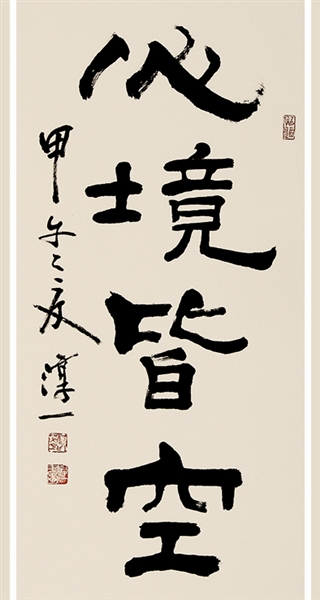 心境皆空
甲午之夏 淳一